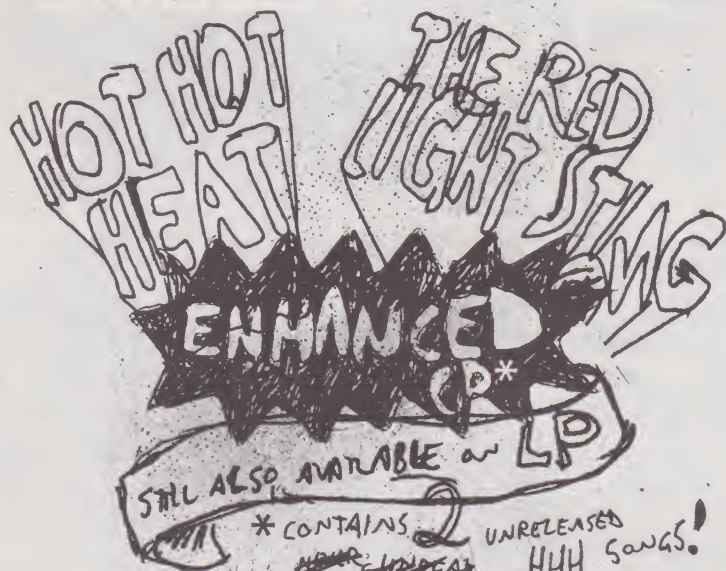 HOT HOT
HEAT
THE RED
LIGHT STING
ENHANCED
CD*
STILL ALSO AVAILABLE ON LP
* CONTAINS 2 UNRELEASED
HHH SONGS!